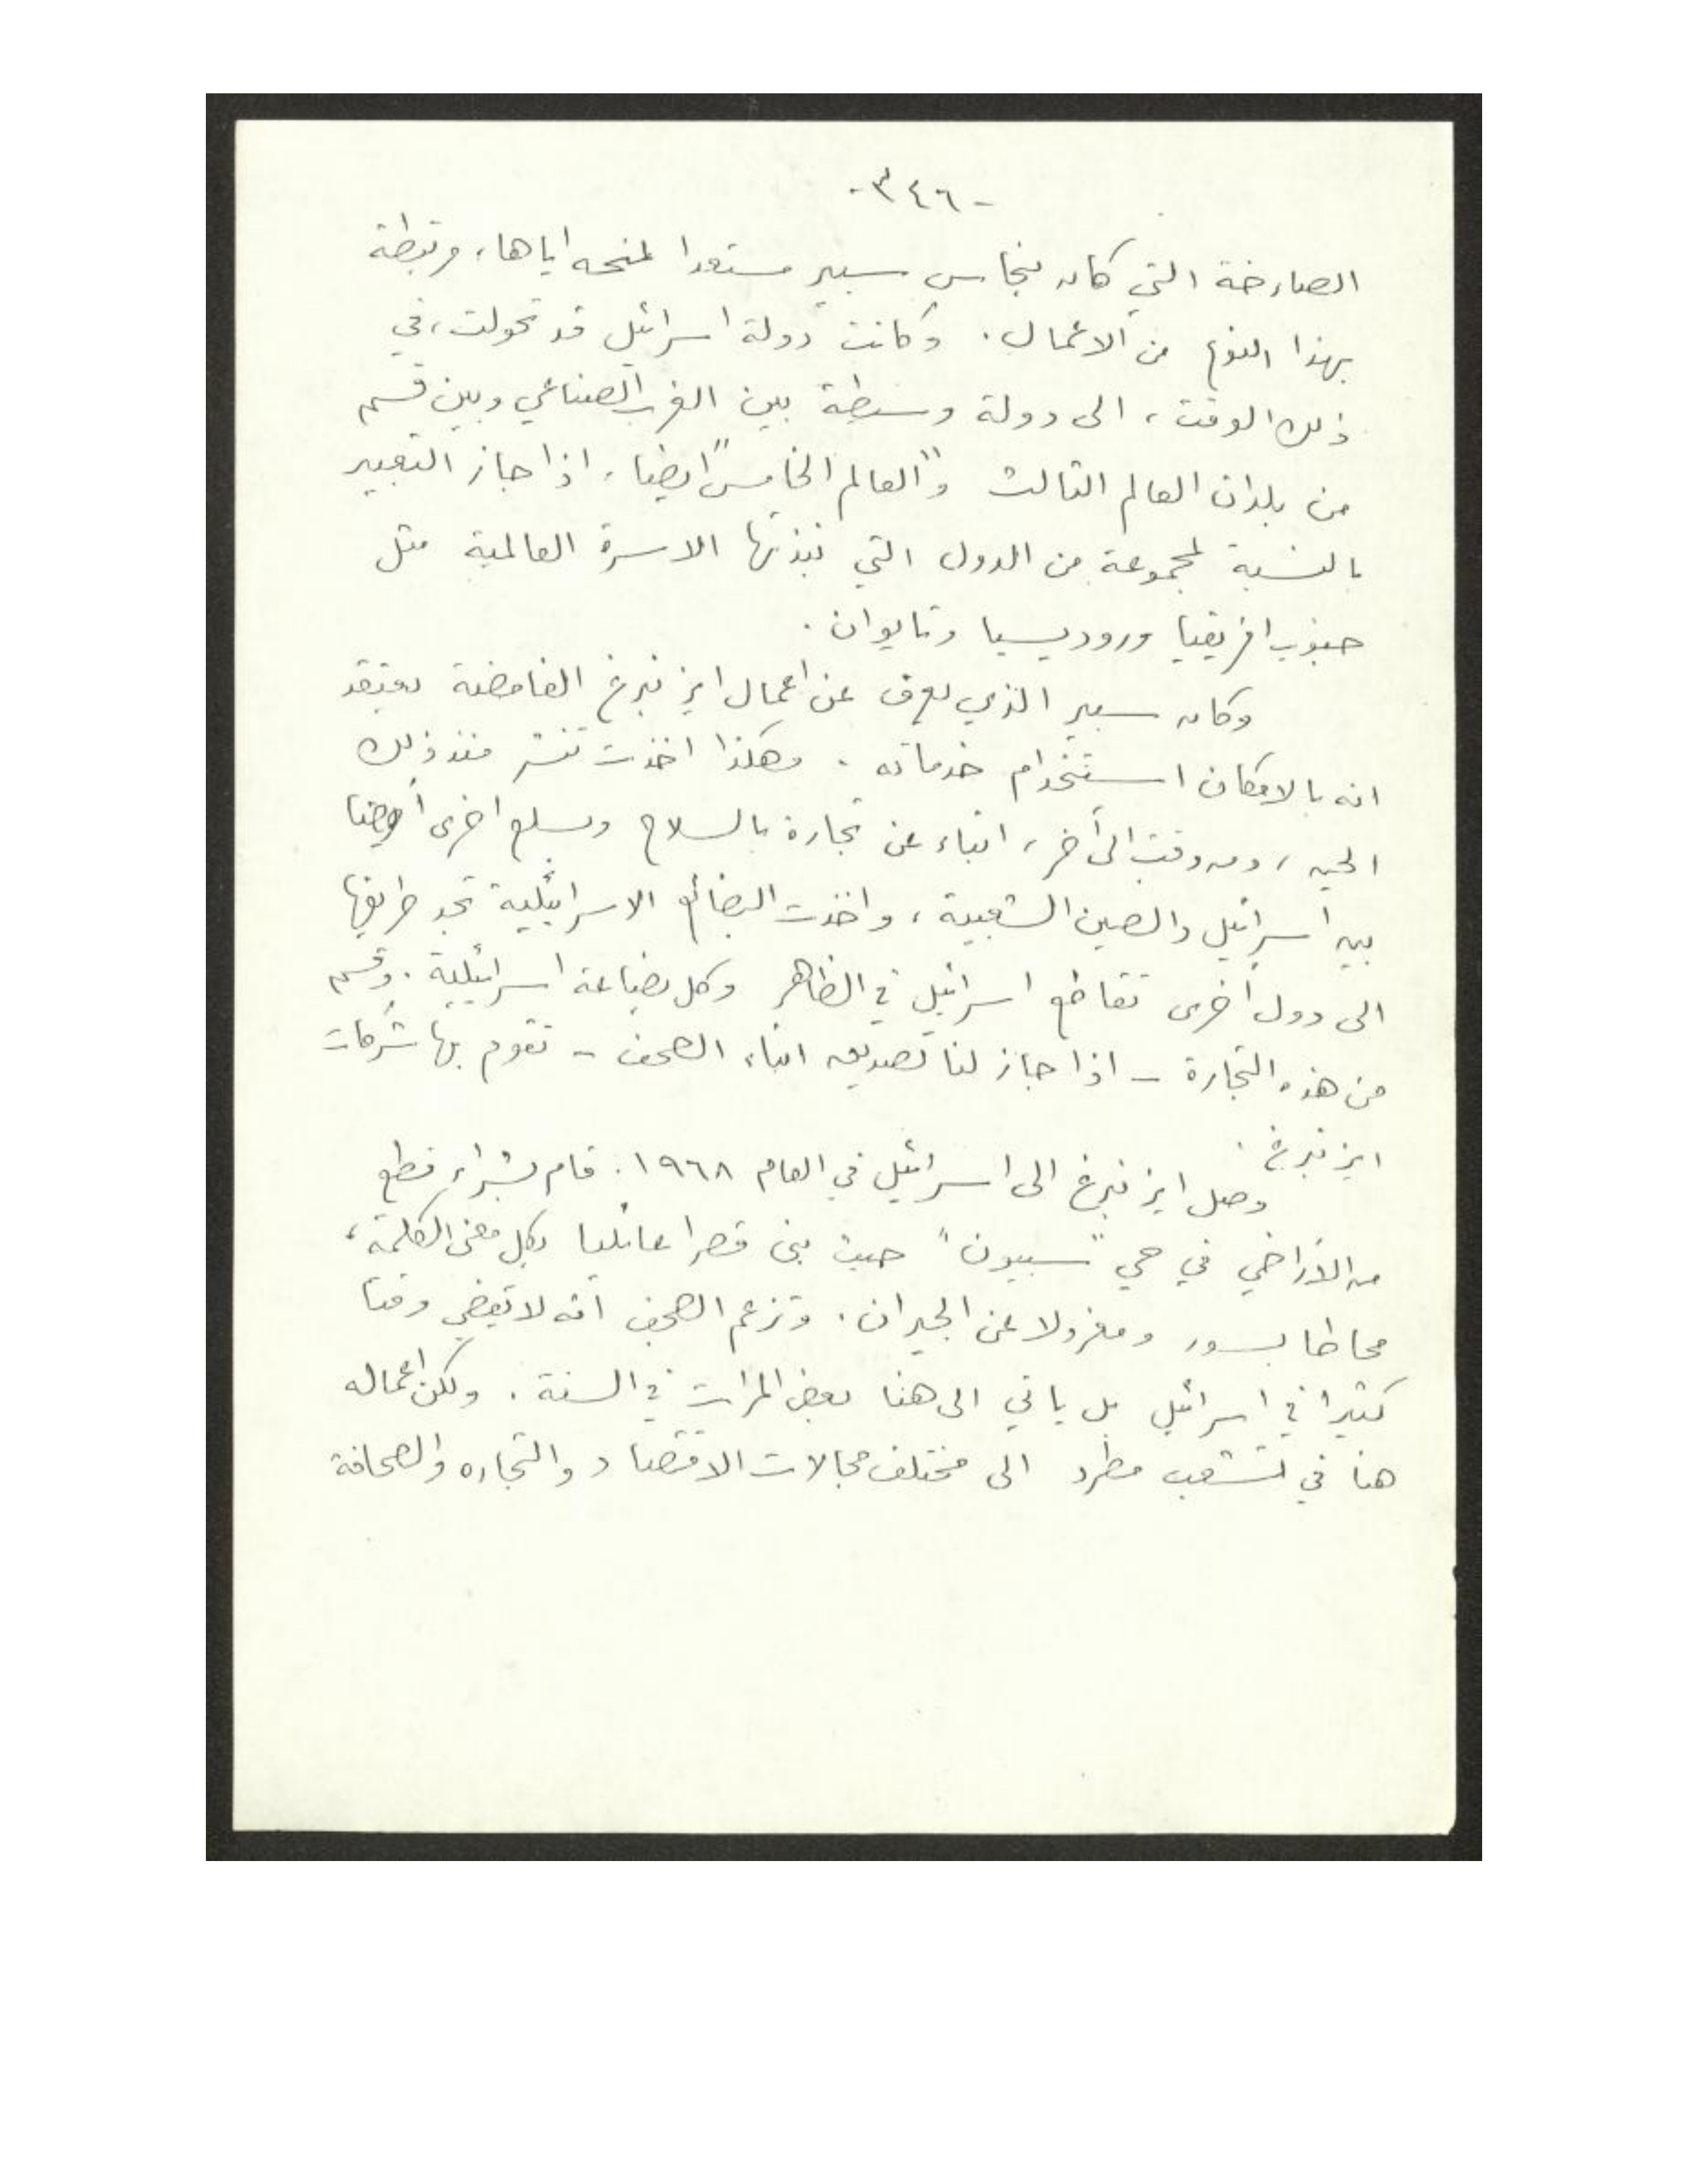 -٣٤٦-
الصارخة التي كان بنحاس سبير مستعدا لمنحه اياها، مرتبطة
بهذا النوع من الاعمال. وكانت دولة اسرائيل قد تحولت، في
ذلك الوقت، الى دولة وسيطة بين الغرب الصناعي وبين قسم
من بلدان العالم الثالث و"العالم الخامس" ايضا، اذا جاز التعبير
بالنسبة لمجموعة من الدول التي نبذتها الاسرة العالمية مثل
جنوب افريقيا وروديسيا وتايوان.
وكان سبير الذي يعرف عن اعمال ايزنبرغ الغامضة يعتقد
انه بالامكان استخدام خدماته. وهكذا اخذت تنشر منذ ذلك
الحين، ومن وقت الى آخر، انباء عن تجارة بالسلاح وبسلع اخرى ايضا
بين اسرائيل والصين الشعبية، واخذت البضائع الاسرائيلية تجد طريقها
الى دول أخرى تقاطع اسرائيل في الظاهر وكل بضاعة اسرائيلية. وقسم
من هذه التجارة - اذا جاز لنا تصديق انباء الصحف - تقوم بها شركات
ايزنبرغ.
وصل ايزنبرغ الى اسرائيل في العام ١٩٦٨. قام بشراء قطع
من الأراضي في حي "سبيون" حيث بنى قصرا عائليا بكل معنى الكلمة،
محاطا بسور ومعزولا عن الجيران. وتزعم الصحف انه لا يقضي وقتا
كثيرا في اسرائيل بل ياتي الى هنا بعض المرات في السنة. ولكن اعماله
هنا في تشعب مطرد الى مختلف مجالات الاقتصاد والتجاره والصحافة